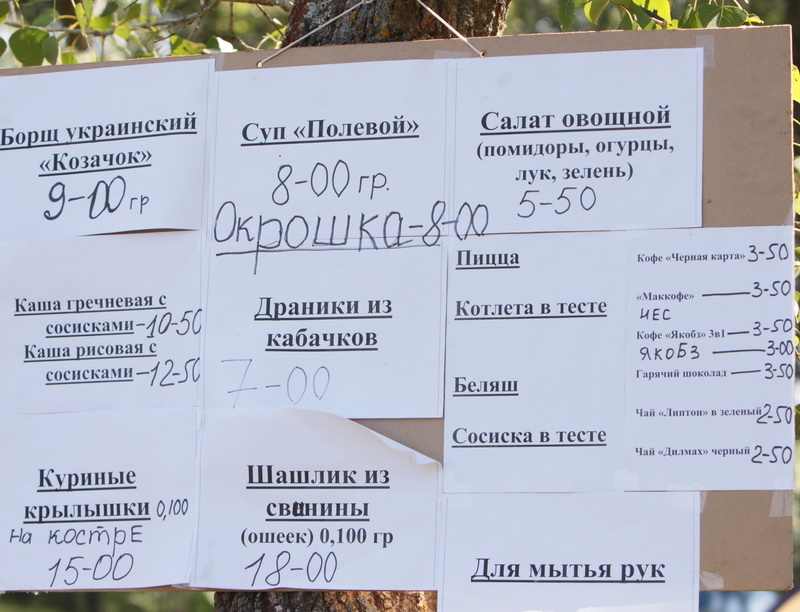 Борщ украинский
«Козачок»
9-00 гр
Суп «Полевой»
8-00 гр.
Окрошка-8-00
Салат овощной
(помидоры, огурцы,
лук, зелень)
5-50
Каша гречневая с
сосисками-10-50
Каша рисовая с
сосисками-12-50
Драники из
кабачков
7-00
Пицца
Котлета в тесте
Беляш
Сосиска в тесте
Кофе «Черная карта» 3-50
«Маккофе» — 3-50
НЕС
Кофе «Якобз» 3в1 — 3-50
ЯКОБЗ — 3-00
Гарячий шоколад — 3-50
Чай «Липтон» в зеленый 2-50
Чай «Дилмах» черный 2-50
Куриные
крылышки 0,100
на кострЕ
15-00
Шашлик из
свинины
(ошеек) 0,100 гр
18-00
Для мытья рук